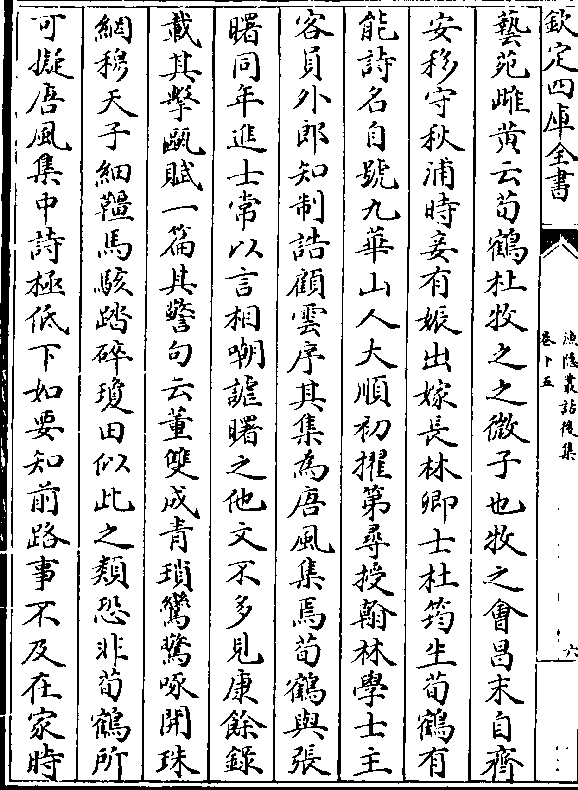 欽定四庫全書
漁隱叢話後集
卷十五
六
藝苑雌黃云荀鶴杜牧之之微子也牧之會昌末自齊
安移守秋浦時妾有娠出嫁長林鄉士杜筠生荀鶴有
能詩名自號九華山人大順初擢第尋授翰林學士主
客員外郎知制誥顧雲序其集為唐風集焉荀鶴與張
曙同年進士常以言相嘲謔曙之他文不多見康餘錄
載其擊甌賦一篇其警句云董雙成青瑣鸞驚啄開珠
網穆天子細韁馬駭踏碎瓊田似此之類恐非荀鶴所
可擬唐風集中詩極低下如要知前路事不及在家時